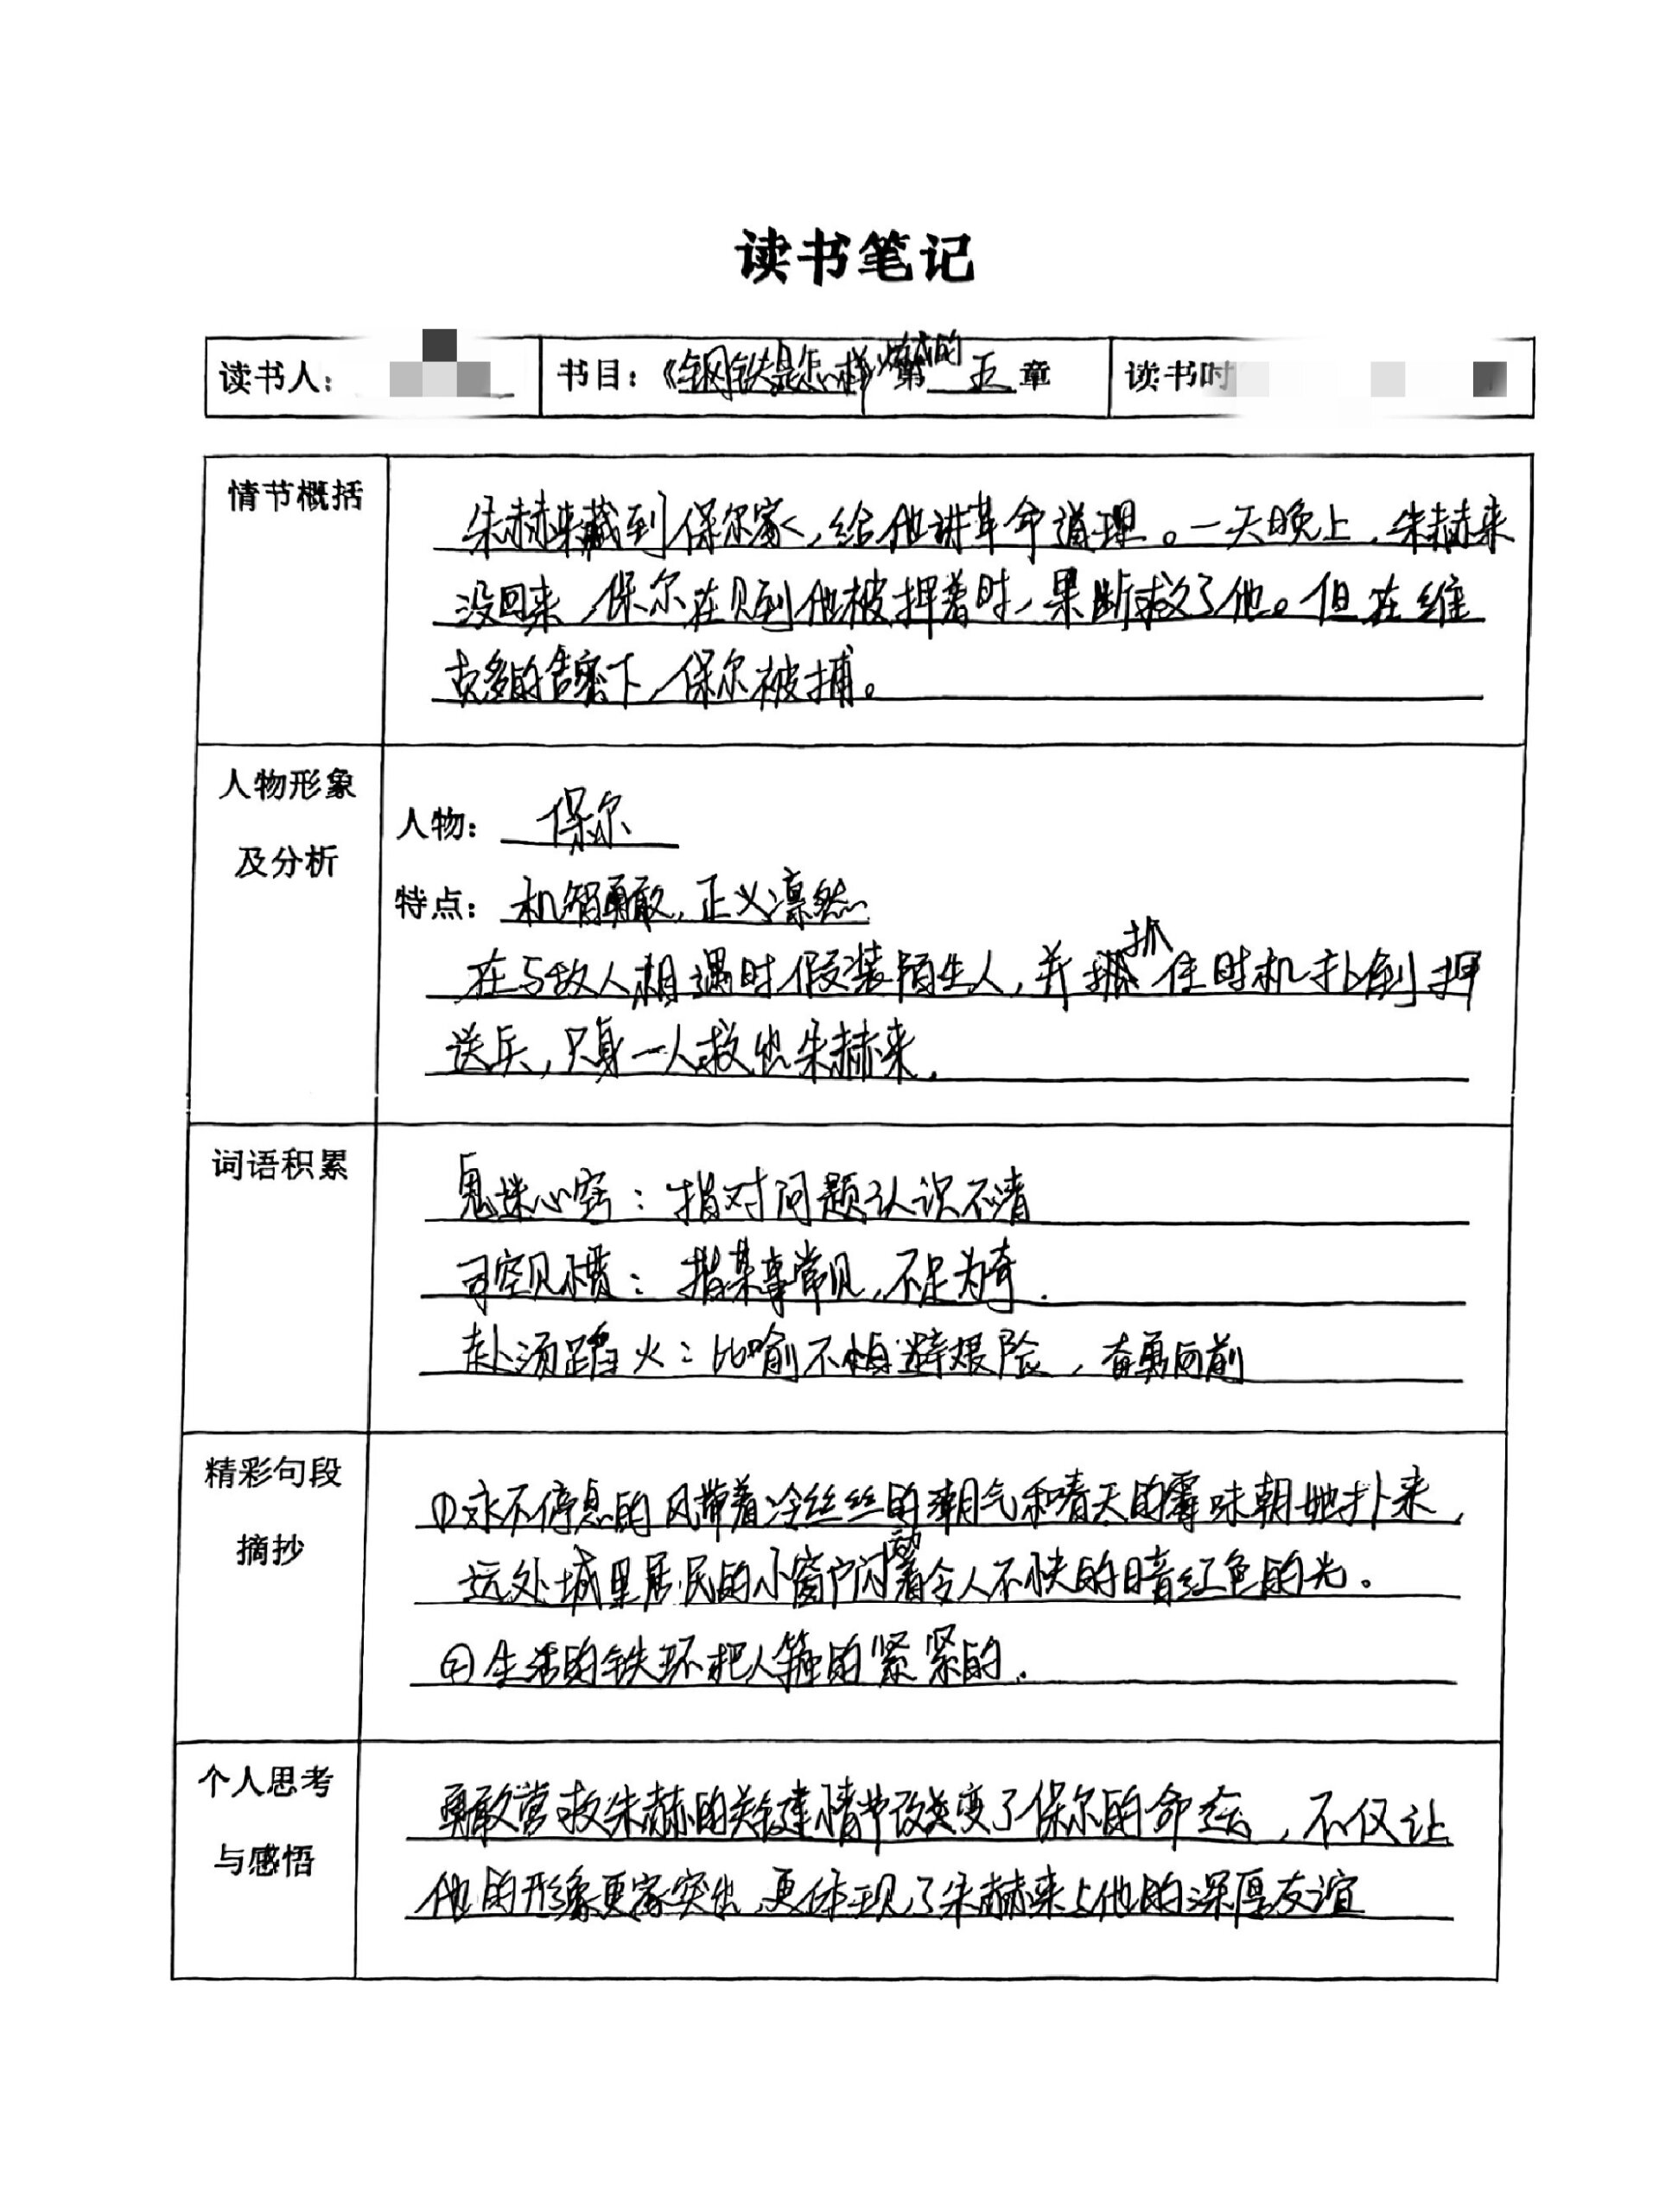 读书笔记
读书人: 书目:《钢铁是怎样炼成的》第 五 章 读书时
情节概括
朱赫来藏到保尔家,给他讲革命道理。一天晚上,朱赫来
没回来,保尔在见到他被押着时,果断救了他。但在维
克多的告密下,保尔被捕。
人物形象
及分析
人物: 保尔
特点: 机智勇敢,正义凛然
在与敌人相遇时假装陌生人,并抓住时机扑倒押
送兵,只身一人救出朱赫来.
词语积累
鬼迷心窍:指对问题认识不清
司空见惯:指某事常见,不足为奇.
赴汤蹈火:比喻不避艰险,奋勇向前
精彩句段
摘抄
①永不停息的风带着冷丝丝的潮气和春天的霉味朝她扑来,
远处城里居民的小窗户闪动着令人不快的暗红色的光。
②生活的铁环把人箍的紧紧的.
个人思考
与感悟
勇敢营救朱赫的关键情节改变了保尔的命运,不仅让
他的形象更家突出,更体现了朱赫来与他的深厚友谊